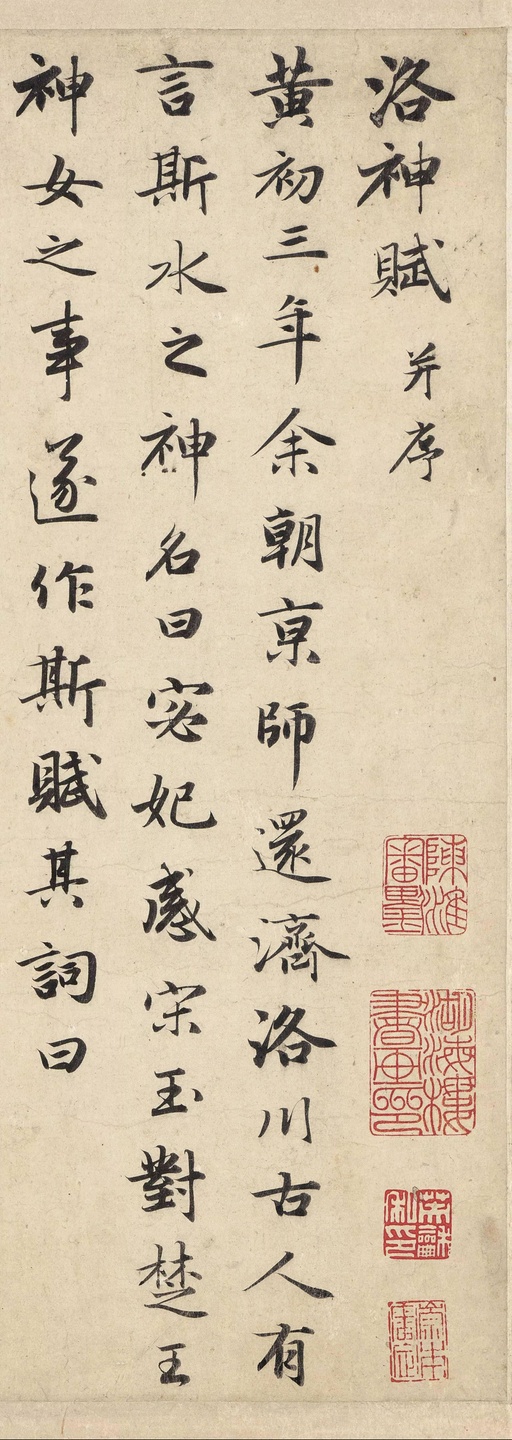 洛神賦 并序
黃初三年余朝京師還濟洛川古人有
言斯水之神名曰宓妃感宋玉對楚王
神女之事遂作斯賦其詞曰